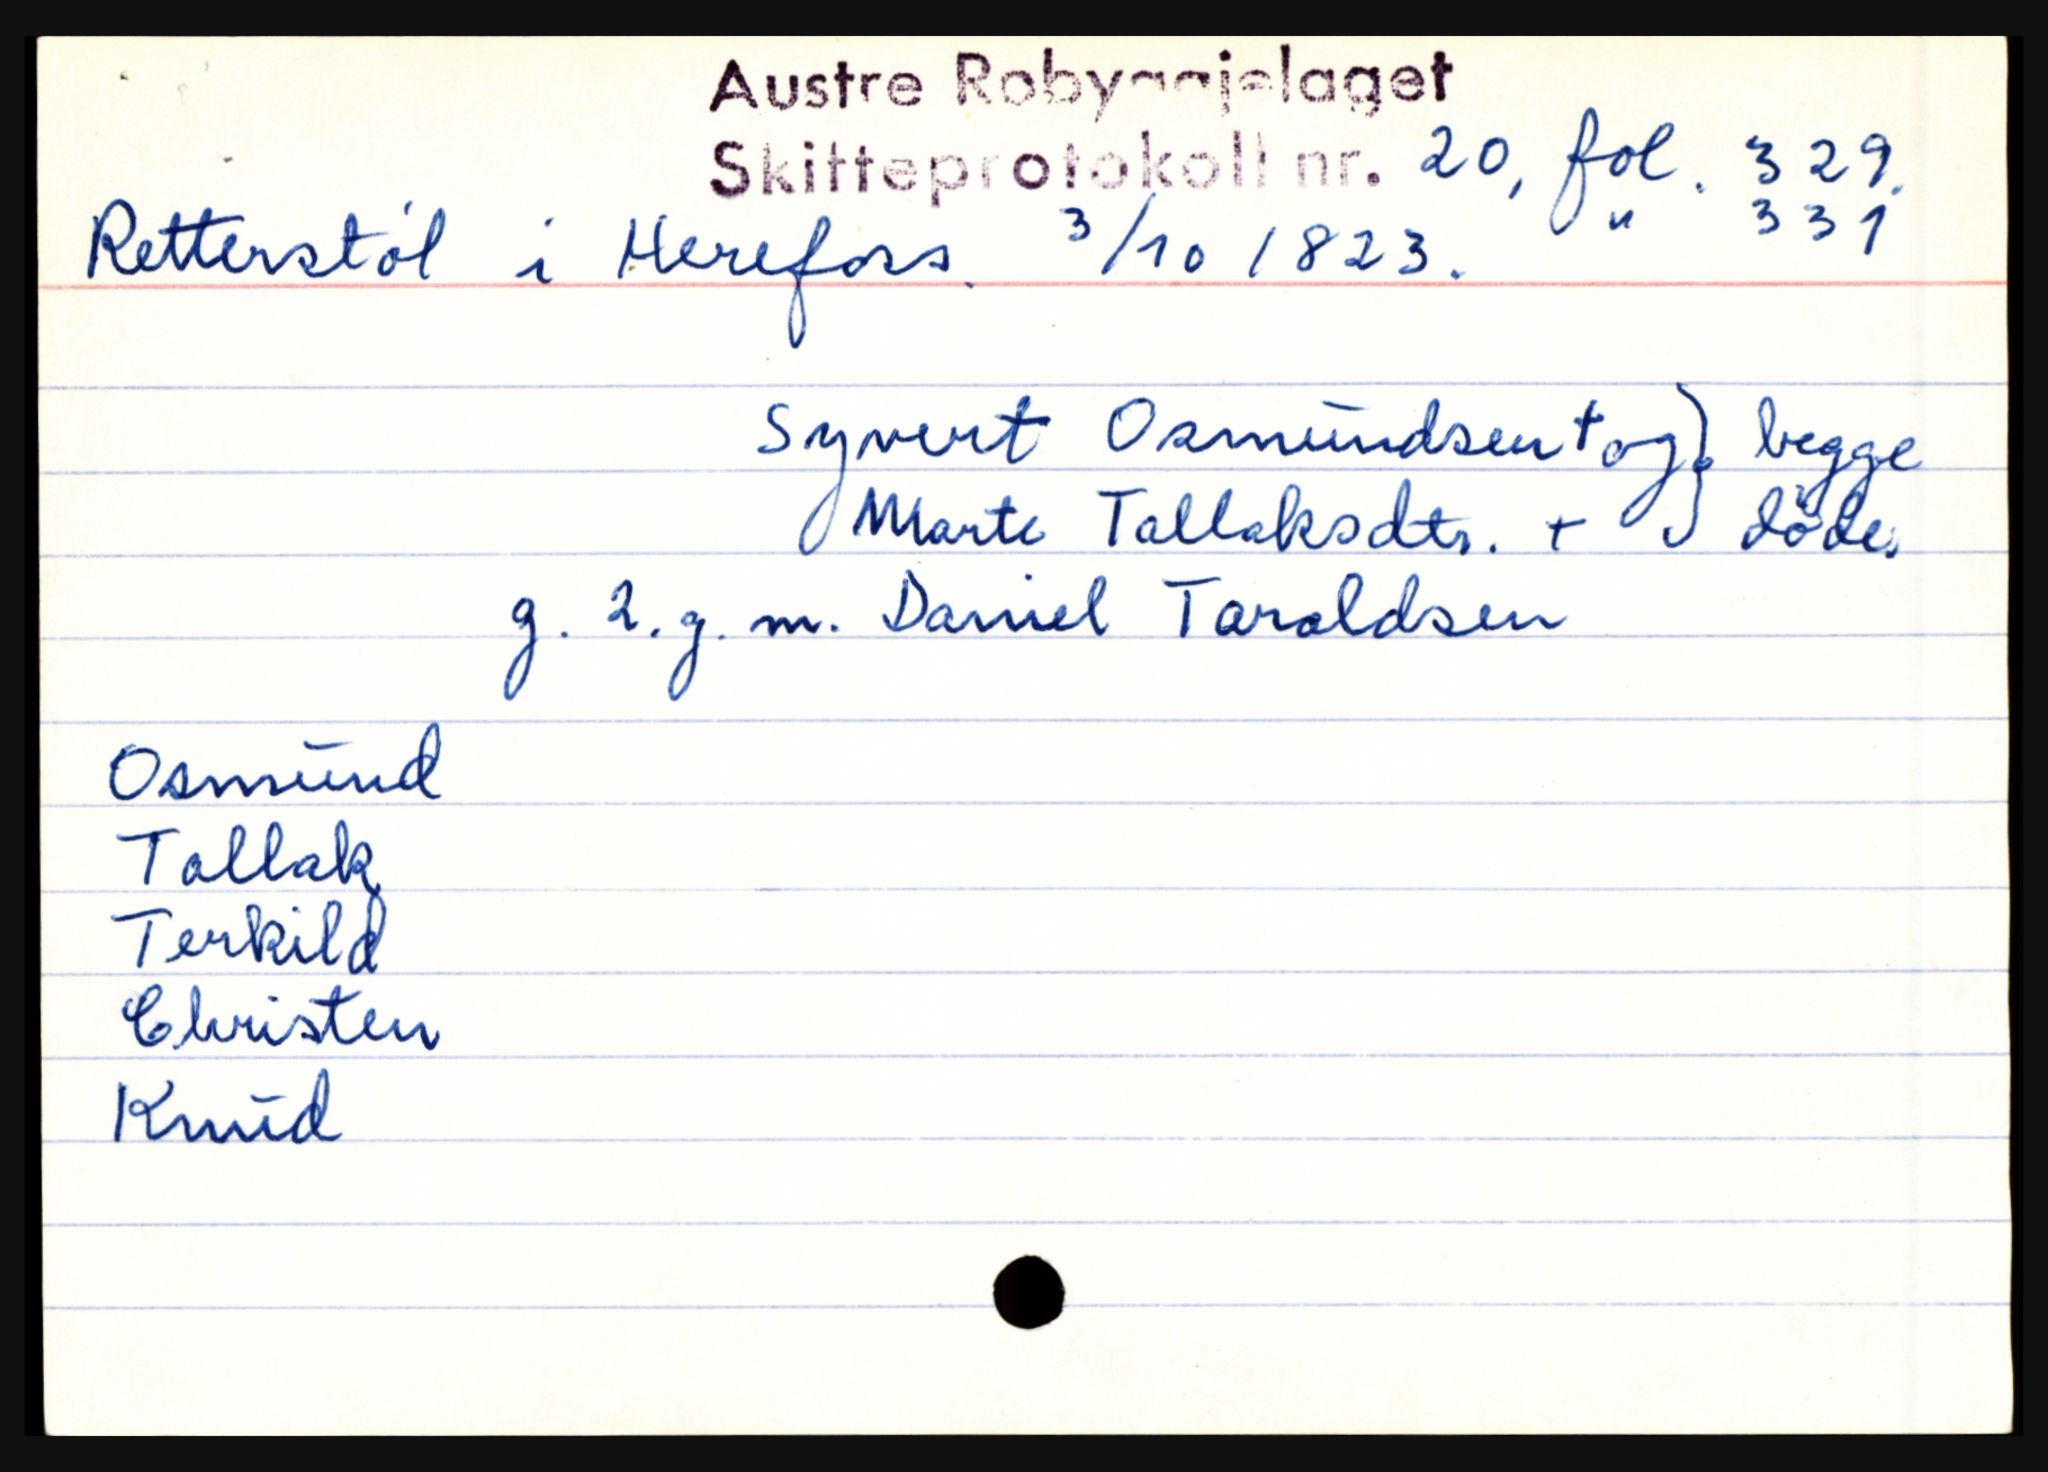 Austre Robyggjelaget
Skifteprotokoll nr. 20, fol. 329.
Retterstøl i Herefoss. 3/10 1823. " 331
Syvert Osmundsen + og } begge
Marte Tallaksdtr. + } døde.
g. 2. g. m. Daniel Taraldsen
Osmund
Tallak
Terkild
Christen
Knud